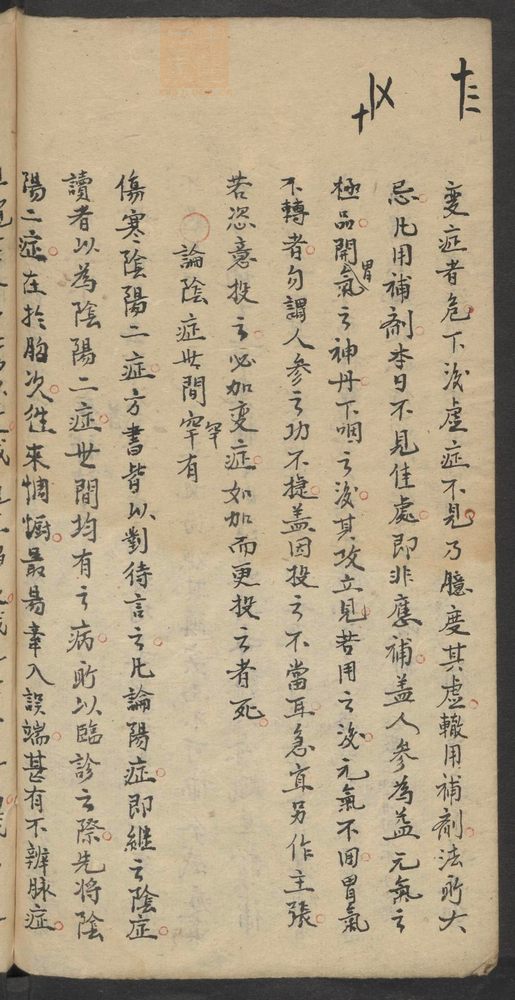 變症者危下後虛症不見乃臆度其虛轍用補劑法所大
忌凡用補劑本日不見佳處即非應補蓋人參為益元氣之
極品開胃氣之神丹下咽之後其攻立見若用之後元氣不回胃氣
不轉者勿謂人參之功不捷蓋因投之不當耳急宜另作主張
若恣意投之必加變症如加而更投之者死
論陰症世間罕有
傷寒陰陽二症方書皆以對待言之凡論陽症即繼之陰症
讀者以為陰陽二症世間均有之病所以臨診之際先將陰
陽二症在於胸次徃來惆㡡最易牽入誤端甚有不辨脉症